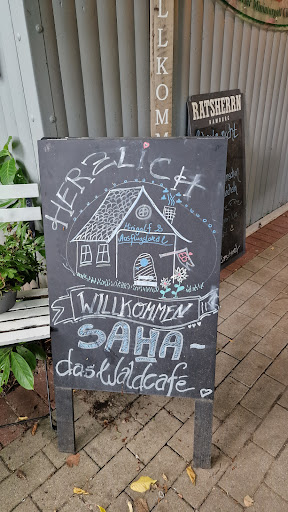 LLKOM
RATSHERRN
HAMBURG
HERZLICH
Ausflugslokal
WILLKOMMEN
SAHA-
das Waldcafe